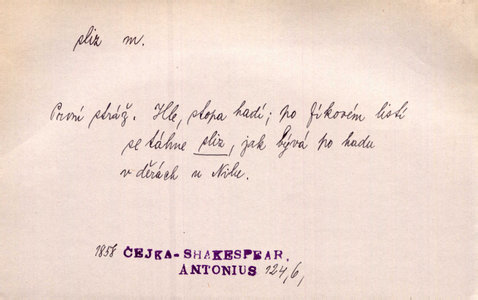 sliz m.
První stráž. Hle, stopa hadí; po fíkovém listí
se táhne sliz, jak bývá po hadu
v děrách u Nilu.
1858 ČEJKA-SHAKESPEAR.
ANTONIUS 124/6,